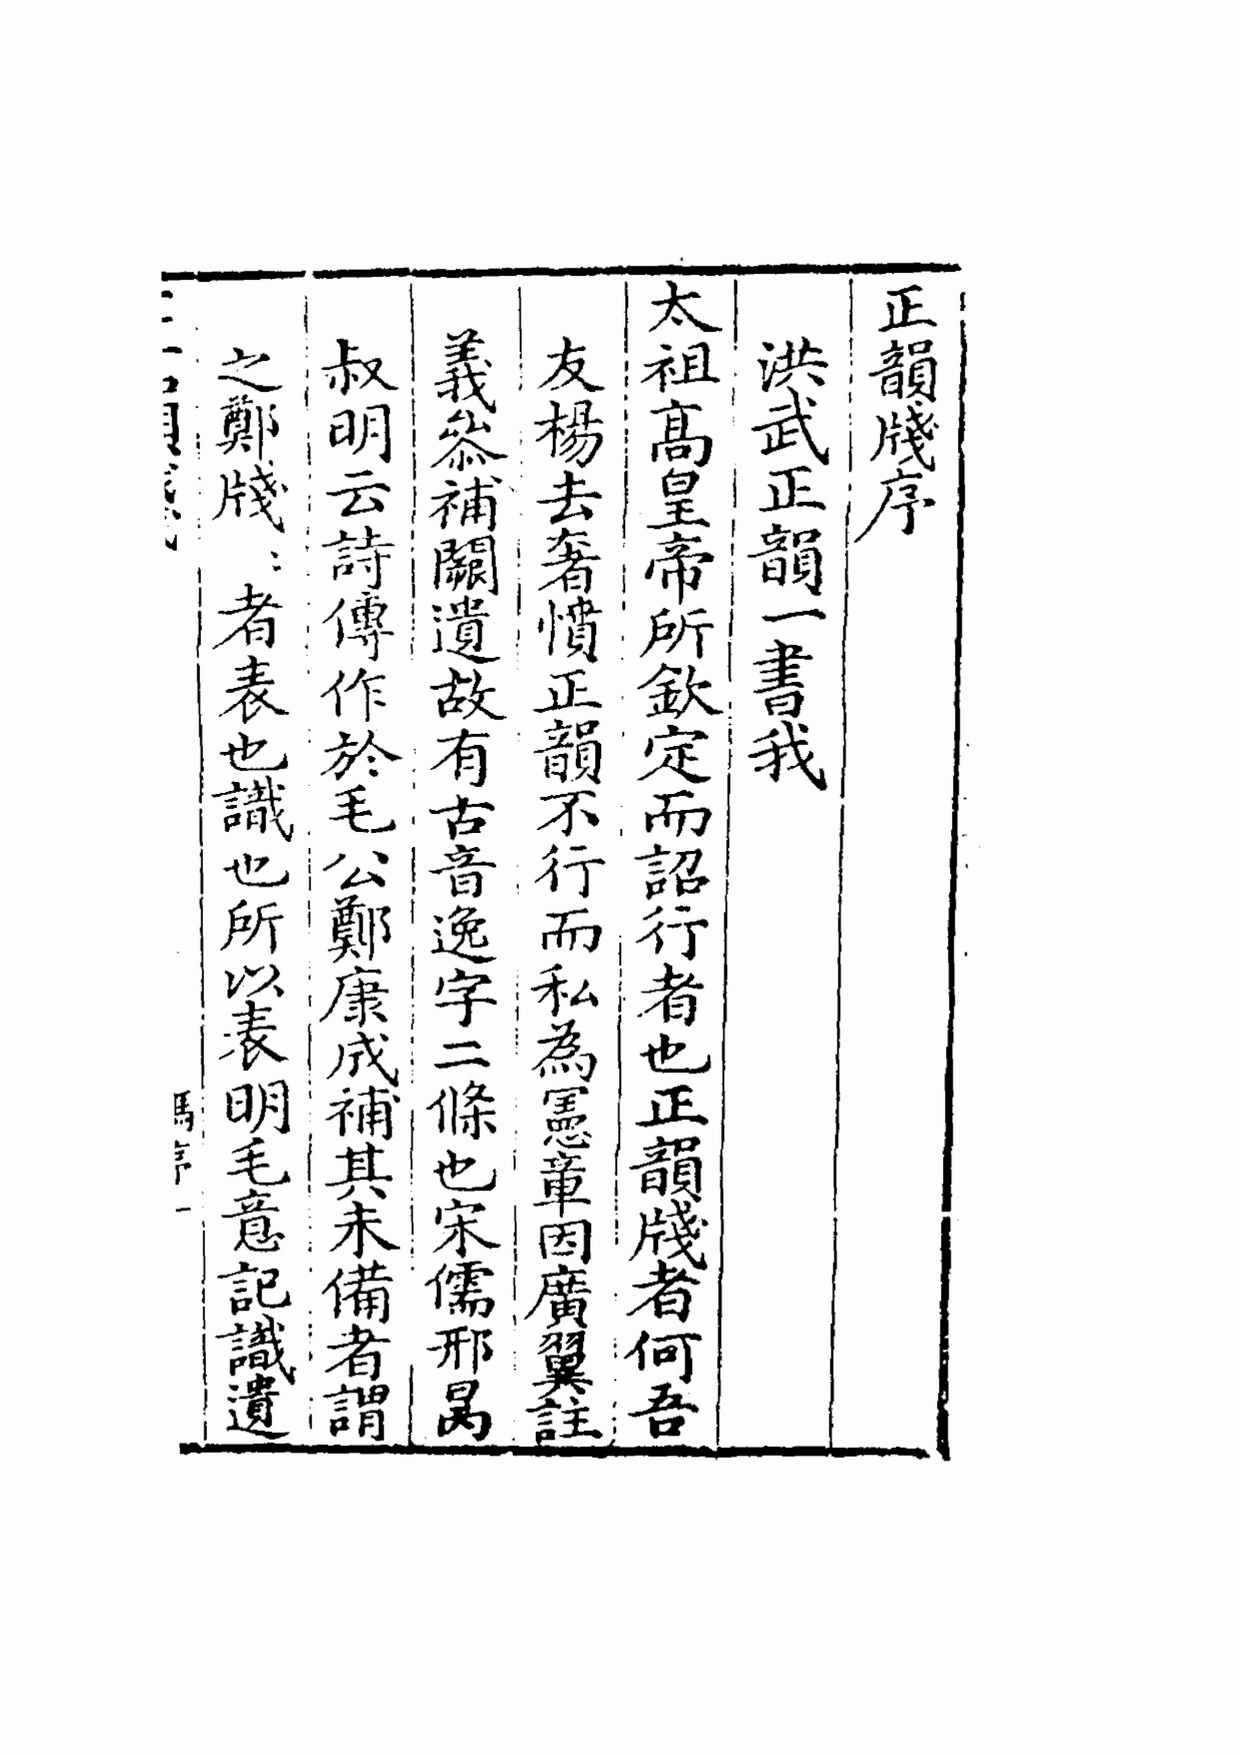 正韻牋序
洪武正韻一書我
太祖高皇帝所欽定而詔行者也正韻牋者何吾
友楊去奢憤正韻不行而私為憲章因廣翼註
義叅補闕遺故有古音逸字二條也宋儒邢昺
叔明云詩傳作於毛公鄭康成補其未備者謂
之鄭牋〻者表也識也所以表明毛意記識遺
馮序一